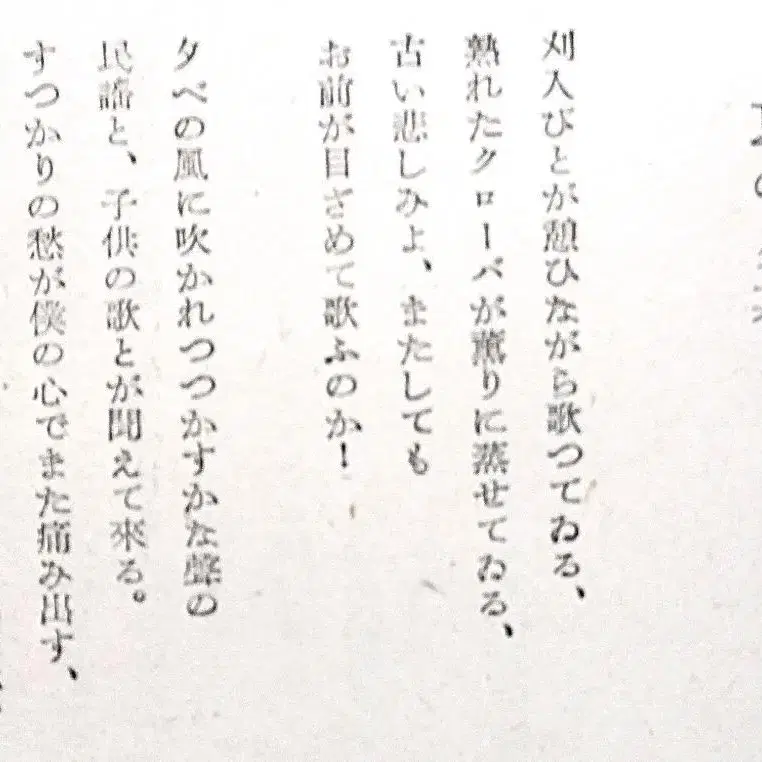 刈入びとが憩ひながら歌つてゐる、
熟れたクローバが薫りに蒸せてゐる、
古い悲しみよ、またしても
お前が目ざめて歌ふのか!
夕べの風に吹かれつつかすかな聲の
民謠と、子供の歌とが聞えて來る。
すつかりの愁が僕の心でまた痛み出す、